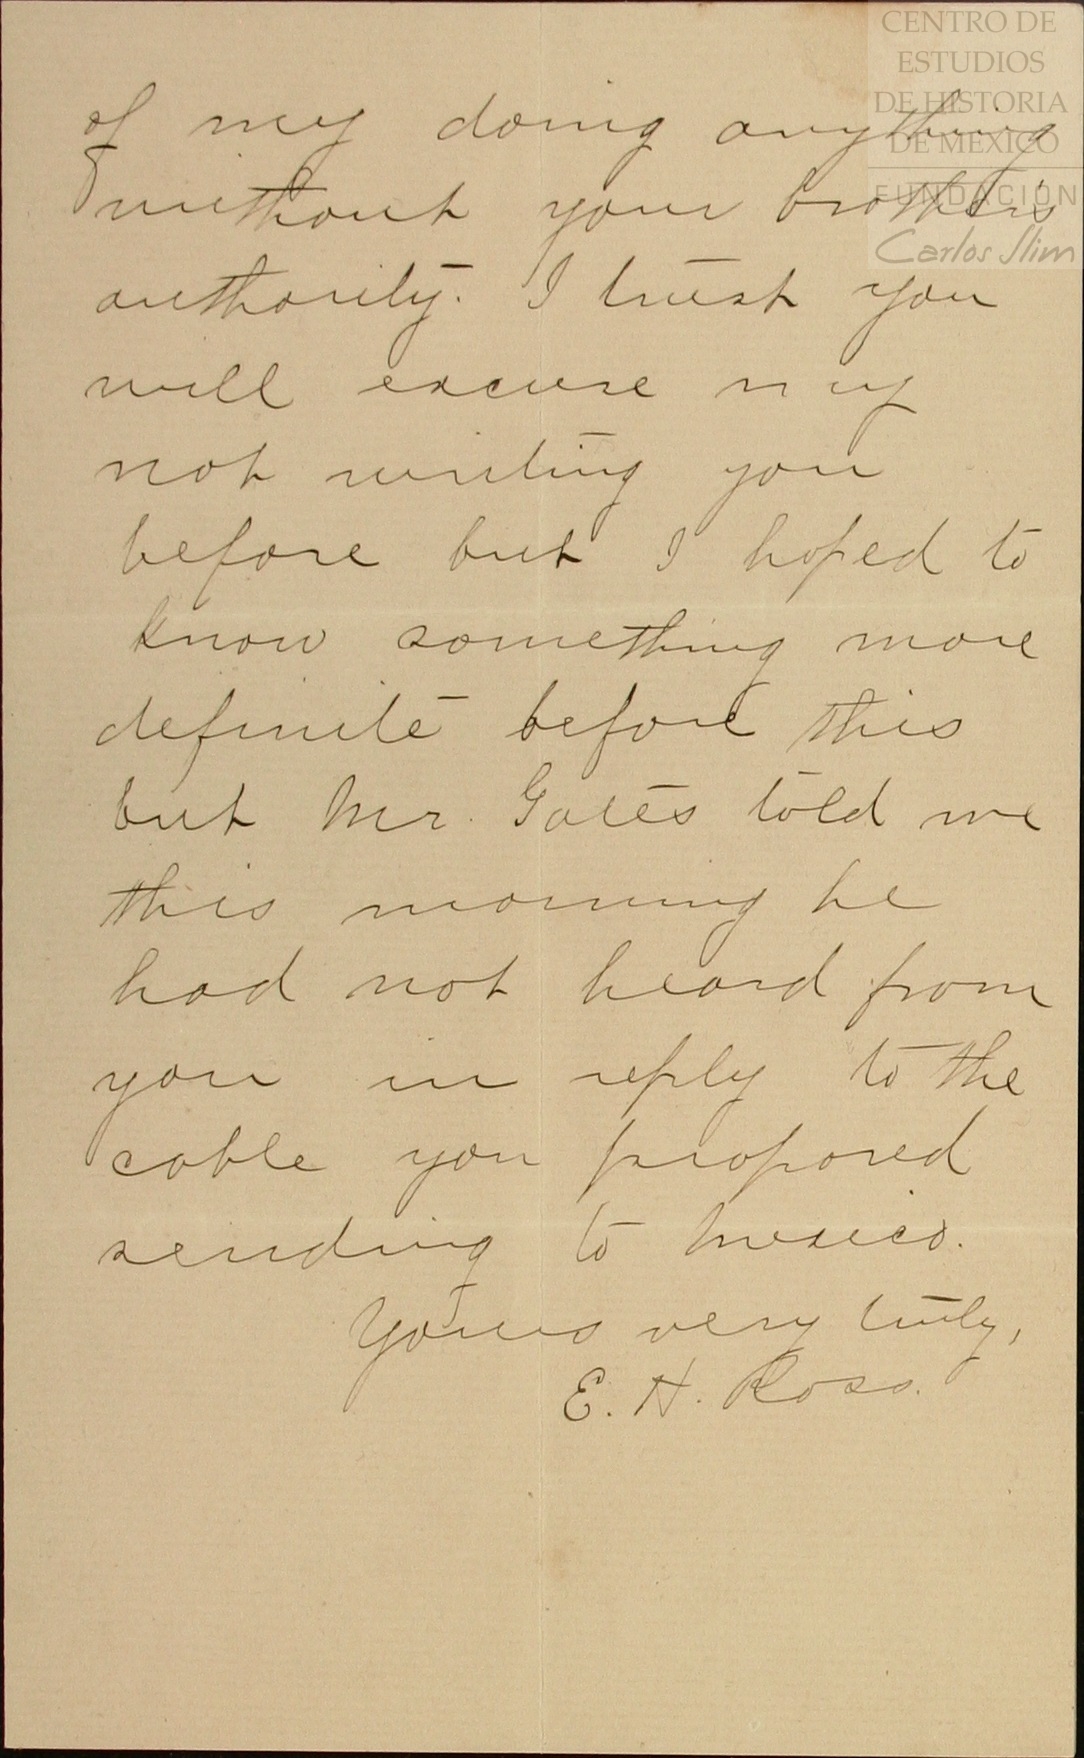 CENTRO DE
ESTUDIOS
DE HISTORIA
DE MÉXICO
FUNDACIÓN
Carlos Slim
of my doing anything
without your brother's
authority. I trust you
will excuse my
not writing you
before but I hoped to
know something more
definite before this
but Mr. Gates told me
this morning he
had not heard from
you in reply to the
cable you proposed
sending to Mexico.
Yours very truly,
E. H. Ross.